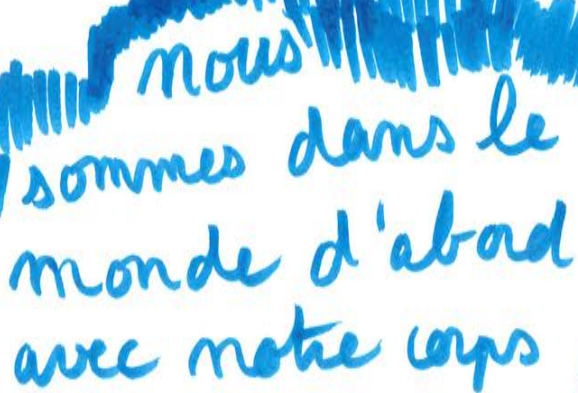 nous
sommes dans le
monde d'abord
avec notre corps